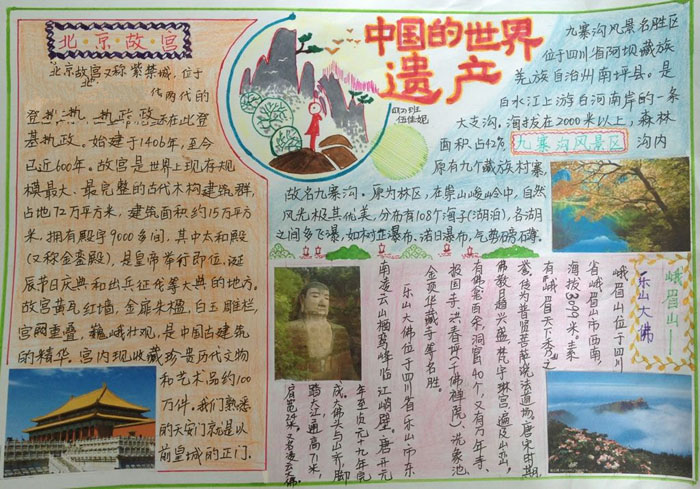 中国的世界
遗产
北·京·故·宫
北京故宫又称紫禁城,位于
北
代两代的
登基执政。始建于1406年,至今
已近600年。故宫是世界上现存规
模最大、最完整的古代木构建筑群,
占地72万平方米,建筑面积约15万平方
米,拥有殿宇9000多间,其中太和殿
(又称金銮殿),是皇帝举行即位、诞
辰节日庆典和出兵征伐等大典的地方。
故宫黄瓦红墙,金扉朱楹,白玉雕栏,
宫阙重叠,巍峨壮观,是中国古建筑
的精华。宫内现收藏珍贵历代文物
和艺术品约100
万件。我们熟悉
的天安门就是以
前皇城的正门.
九寨沟风景名胜区
位于四川省阿坝藏族
羌族自治州南坪县。是
白水江上游白河南岸的一条
大支沟。海拔在2000米以上,森林
面积占42% 九寨沟风景区 沟内
原有九个藏族村寨,
故名九寨沟。原为林区,在崇山峻岭中,自然
风光极其优美,分布有108个海子(湖泊),各湖
之间多飞瀑,如树正瀑布、诺日瀑布,气势磅礴。
峨眉山——
乐山大佛
峨眉山位于四川
省峨眉山市西南,
海拔3099米。素
有“峨眉天下秀”之
誉。传为普贤菩萨说法道场。唐宋时期
佛教日趋兴盛,梵宇琳宫,遍及山丘,
有佛寺百余,洞窟40个,又有万年寺、
报国寺、洪春坪(千佛禅院)、洗象池
金顶华藏寺等名胜。
乐山大佛位于四川省乐山市东
南凌云山栖鸾峰临江峭壁。唐开元
年至贞元十九年完
成。大佛头与山齐,脚
踏大江,通高71米,
肩宽28米,又名凌云大佛。